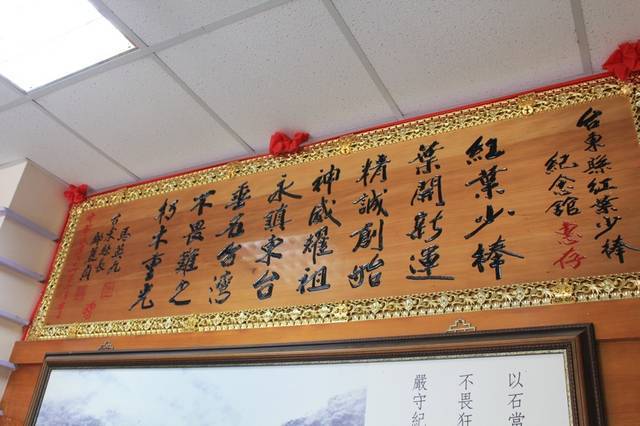 台東縣紅葉少棒
紀念館 惠存
紅葉少棒
葉開新運
精誠創始
神威耀祖
永鎮東台
垂名台灣
不畏難之
朽木重光
台東縣長
以石當
不畏狂
嚴守紀